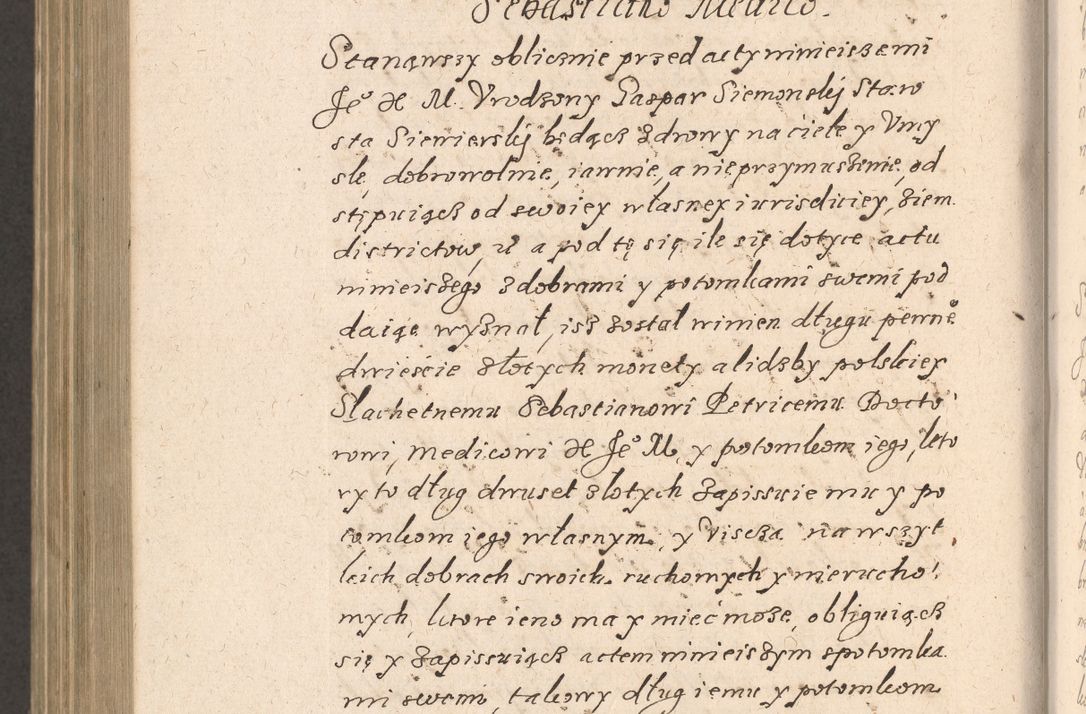 Sebastiano Medico.
Stanąwszy oblicznie przed acty ninieiszemi
Je° X M. Vrodzony Gaspar Siemonskij Staro
sta Siewierskij będącz zdrowy na ciele y Vmy
sle, dobrowolnie, iawnie, a nieprzymuszenie, od
stępuiącz od swoiey własney iurisdiciey, ziem.
districtow, a pod tę się ile się dotyce actu
ninieiszego z dobrami y potomkami swemi pod
daiąc wyznał, isz został winien długu pewne°
dwieście złotych monety a lidzby polskiey
Slachetnemu Sebastianowi Petricemu Docto
rowi, medicowi X Je° M. y potomkom iego, kto
ry to dług dwuset złotych zapissuie mu y po
tomkom iego własnym, y Viscza na wszyt
kich dobrach swoich ruchomych y nierucho
mych, ktore ieno ma y mieć może, obliguiącz
się y zapissuiącz actem ninieiszym s potomka
mi swemi, takowy dług iemu y potomkom